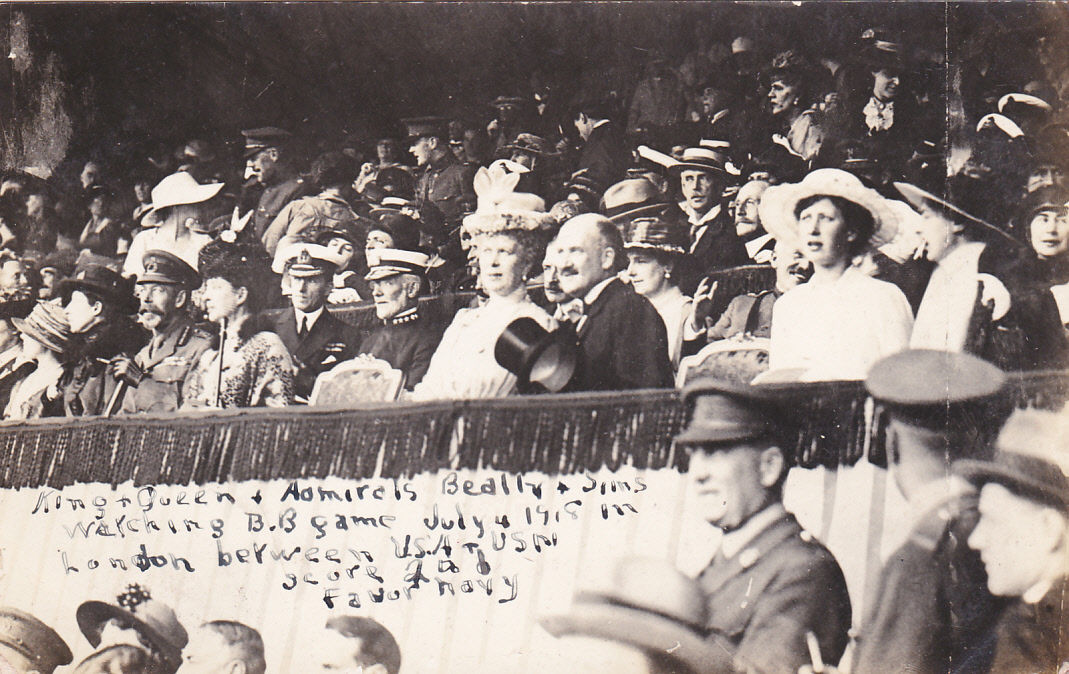 King + Queen + Admirals Beatty + Sims
watching B.B game July 4 1918 in
London between USA + USN
score 2 to 1
Favor navy